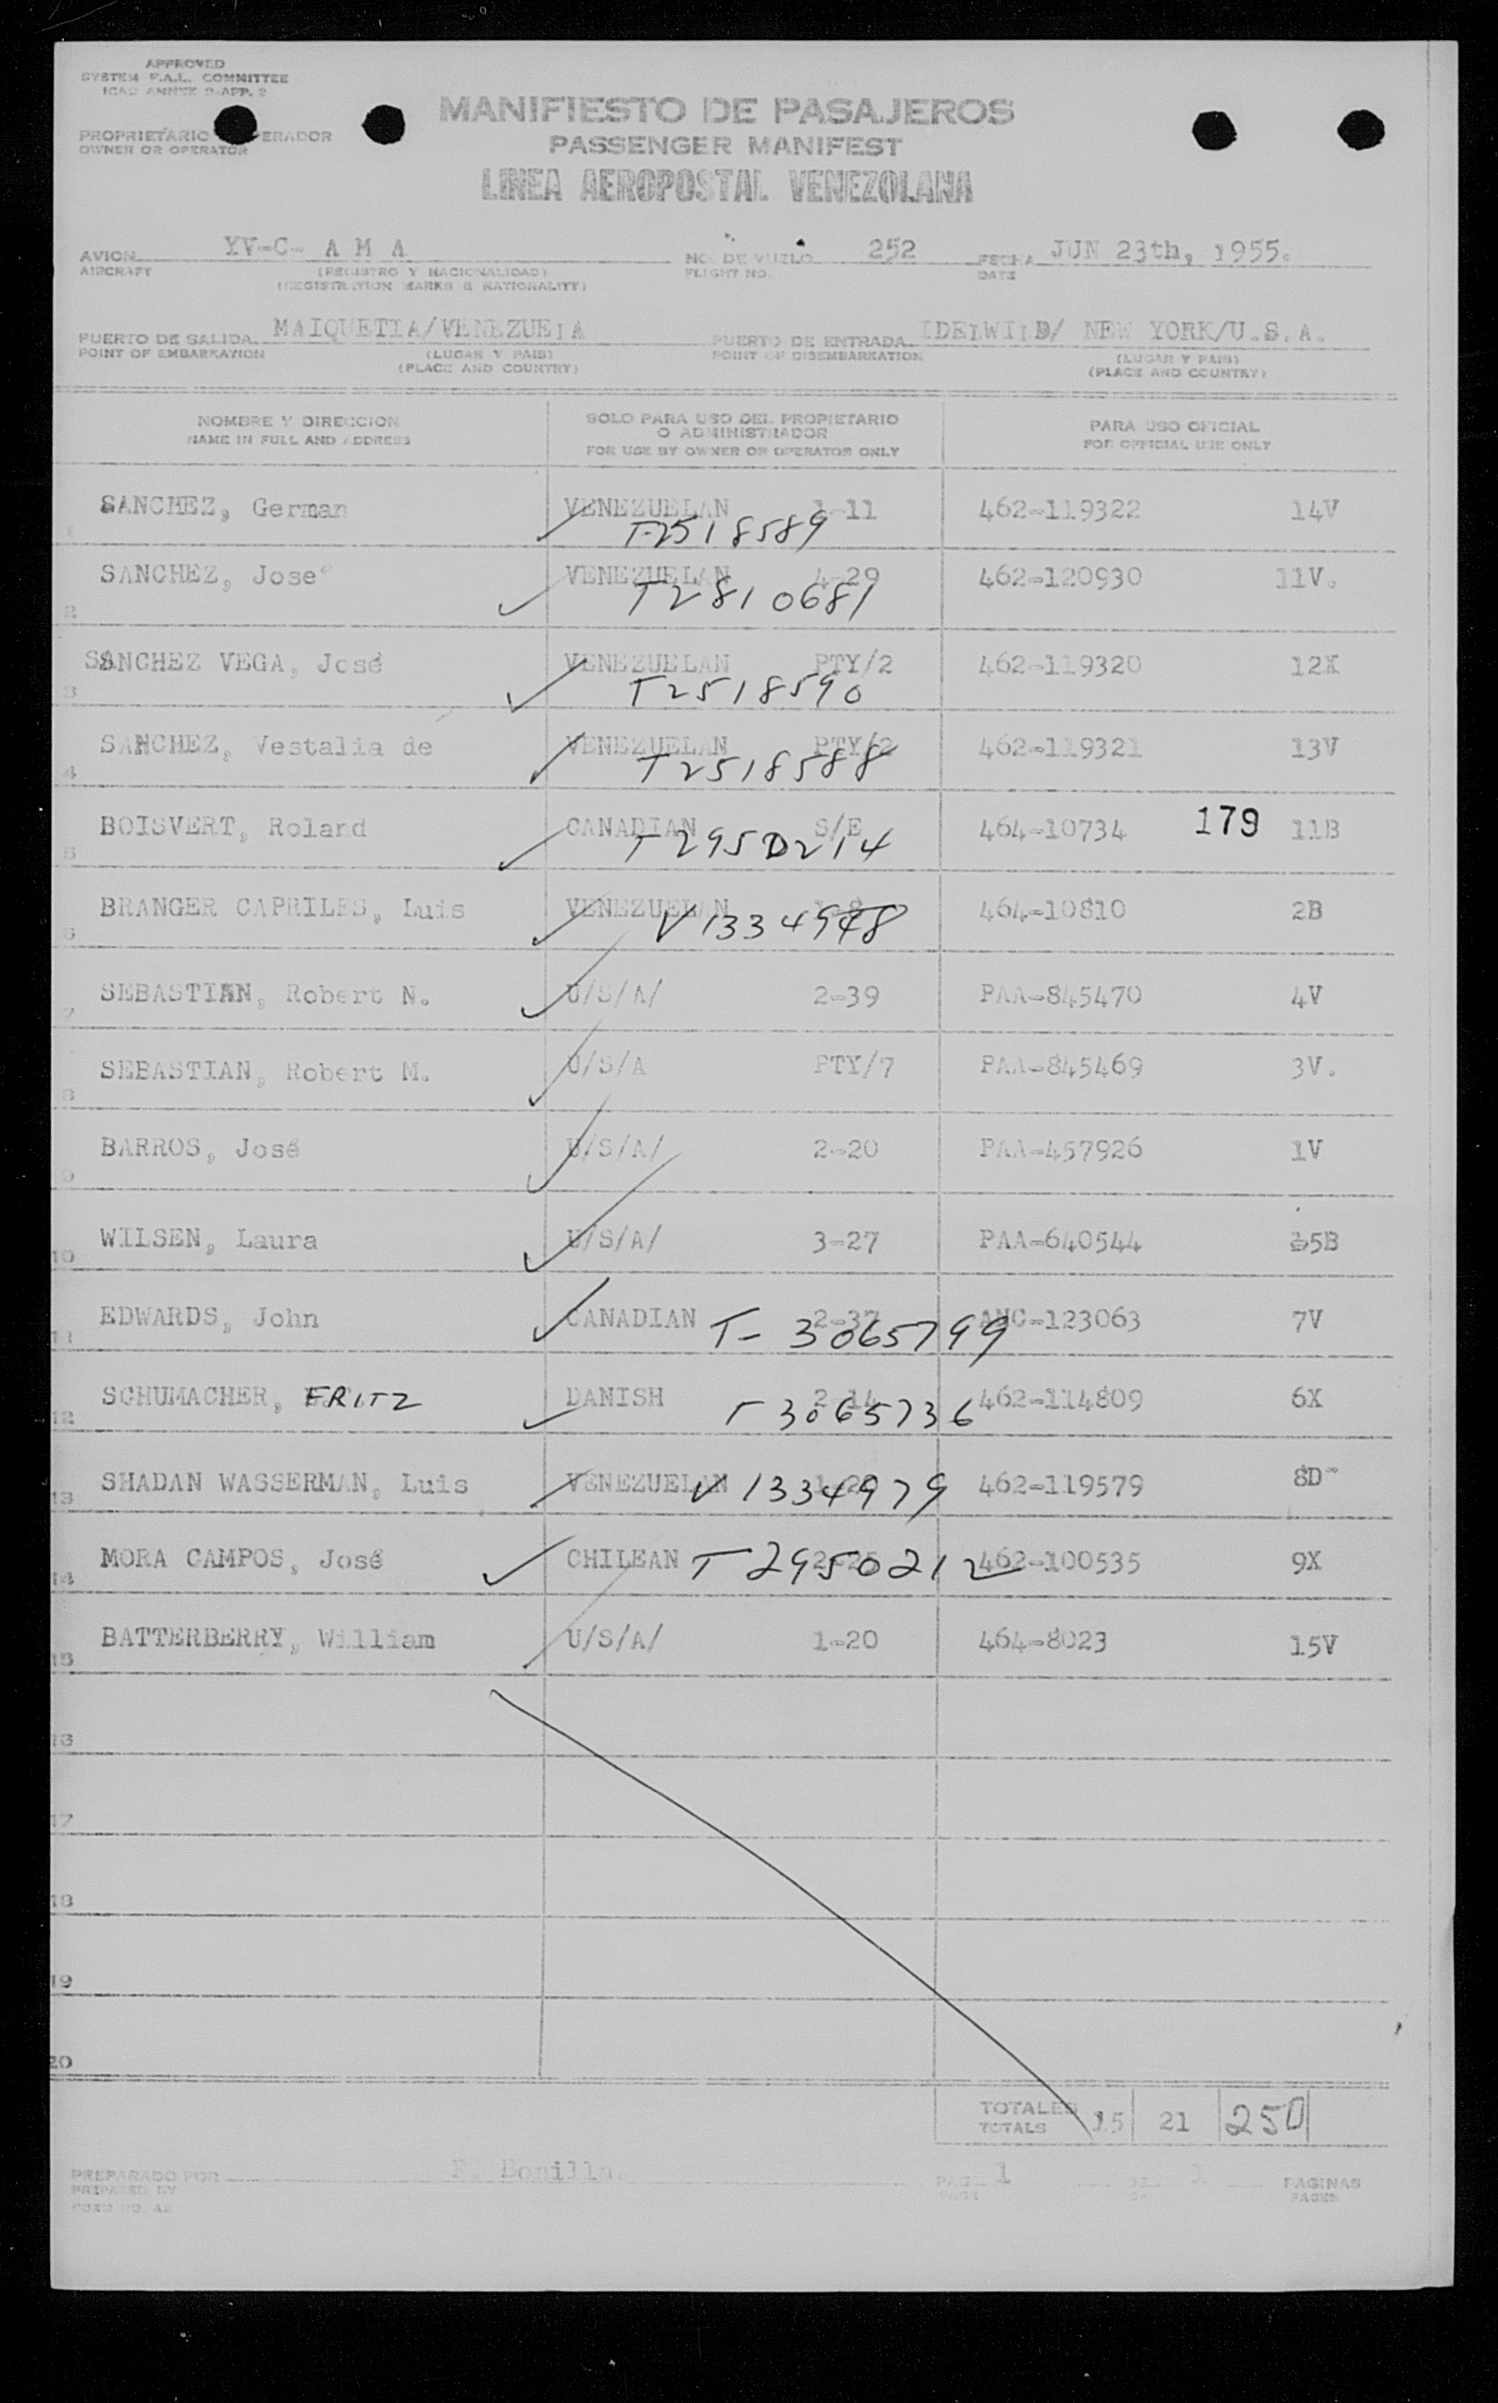 APPROVED
SYSTEM F.A.L. COMMITTEE
ICAO ANNEX 9-APP. 2
MANIFIESTO DE PASAJEROS
PROPRIETARIO ERADOR
OWNER OR OPERATOR
PASSENGER MANIFEST
LINEA AEROPOSTAL VENEZOLANA
AVION YV-C- A M A NO. DE VUELO 252 FECHA JUN 23th, 1955.
AIRCRAFT (REGISTRO Y NACIONALIDAD) FLIGHT NO. DATE
(REGISTRATION MARKS & NATIONALITY)
PUERTO DE SALIDA MAIQUETIA/VENEZUEIA PUERTO DE ENTRADA IDEIWIID/ NEW YORK/U.S.A.
POINT OF EMBARKATION (LUGAR Y PAIS) POINT OF DISEMBARKATION (LUGAR Y PAIS)
(PLACE AND COUNTRY) (PLACE AND COUNTRY)
NOMBRE Y DIRECCION SOLO PARA USO DEL PROPIETARIO PARA USO OFICIAL
O ADMINISTRADOR
NAME IN FULL AND ADDRESS FOR USE BY OWNER OR OPERATOR ONLY FOR OFFICIAL USE ONLY
1 SANCHEZ, German VENEZUELAN 1-11 462-119322 14V
T-2518589
2 SANCHEZ, Jose VENEZUELAN 4-29 462-120930 11V.
T2810681
3 SANCHEZ VEGA, José VENEZUELAN PTY/2 462-119320 12X
T2518590
4 SANCHEZ, Vestalia de VENEZUELAN PTY/2 462-119321 13V
T2518588
5 BOISVERT, Roland CANADIAN S/E 464-10734 179 11B
T2950214
6 BRANGER CAPRILES, Luis VENEZUELAN 1-8 464-10810 2B
V1334978
7 SEBASTIAN, Robert N. U/S/A/ 2-39 PAA-845470 4V
8 SEBASTIAN, Robert M. U/S/A PTY/7 PAA-845469 3V.
9 BARROS, José U/S/A/ 2-20 PAA-457926 1V
10 WILSEN, Laura U/S/A/ 3-27 PAA-640544 5B
11 EDWARDS, John CANADIAN 2-37 ANC-123063 7V
T- 3065799
12 SCHUMACHER, FRITZ DANISH 2-14 462-114809 6X
T3065736
13 SHADAN WASSERMAN, Luis VENEZUELAN V1334979 462-119579 8D
14 MORA CAMPOS, José CHILEAN T2950212 462-100535 9X
15 BATTERBERRY, William U/S/A/ 1-20 464-8023 15V
16
17
18
19
20
TOTALES
TOTALS 15 21 250
PREPARADO POR F. Bonilla. PAG. 1 DE 1 PAGINAS
PREPARED BY PAGE OF PAGES
FORM NO. A2